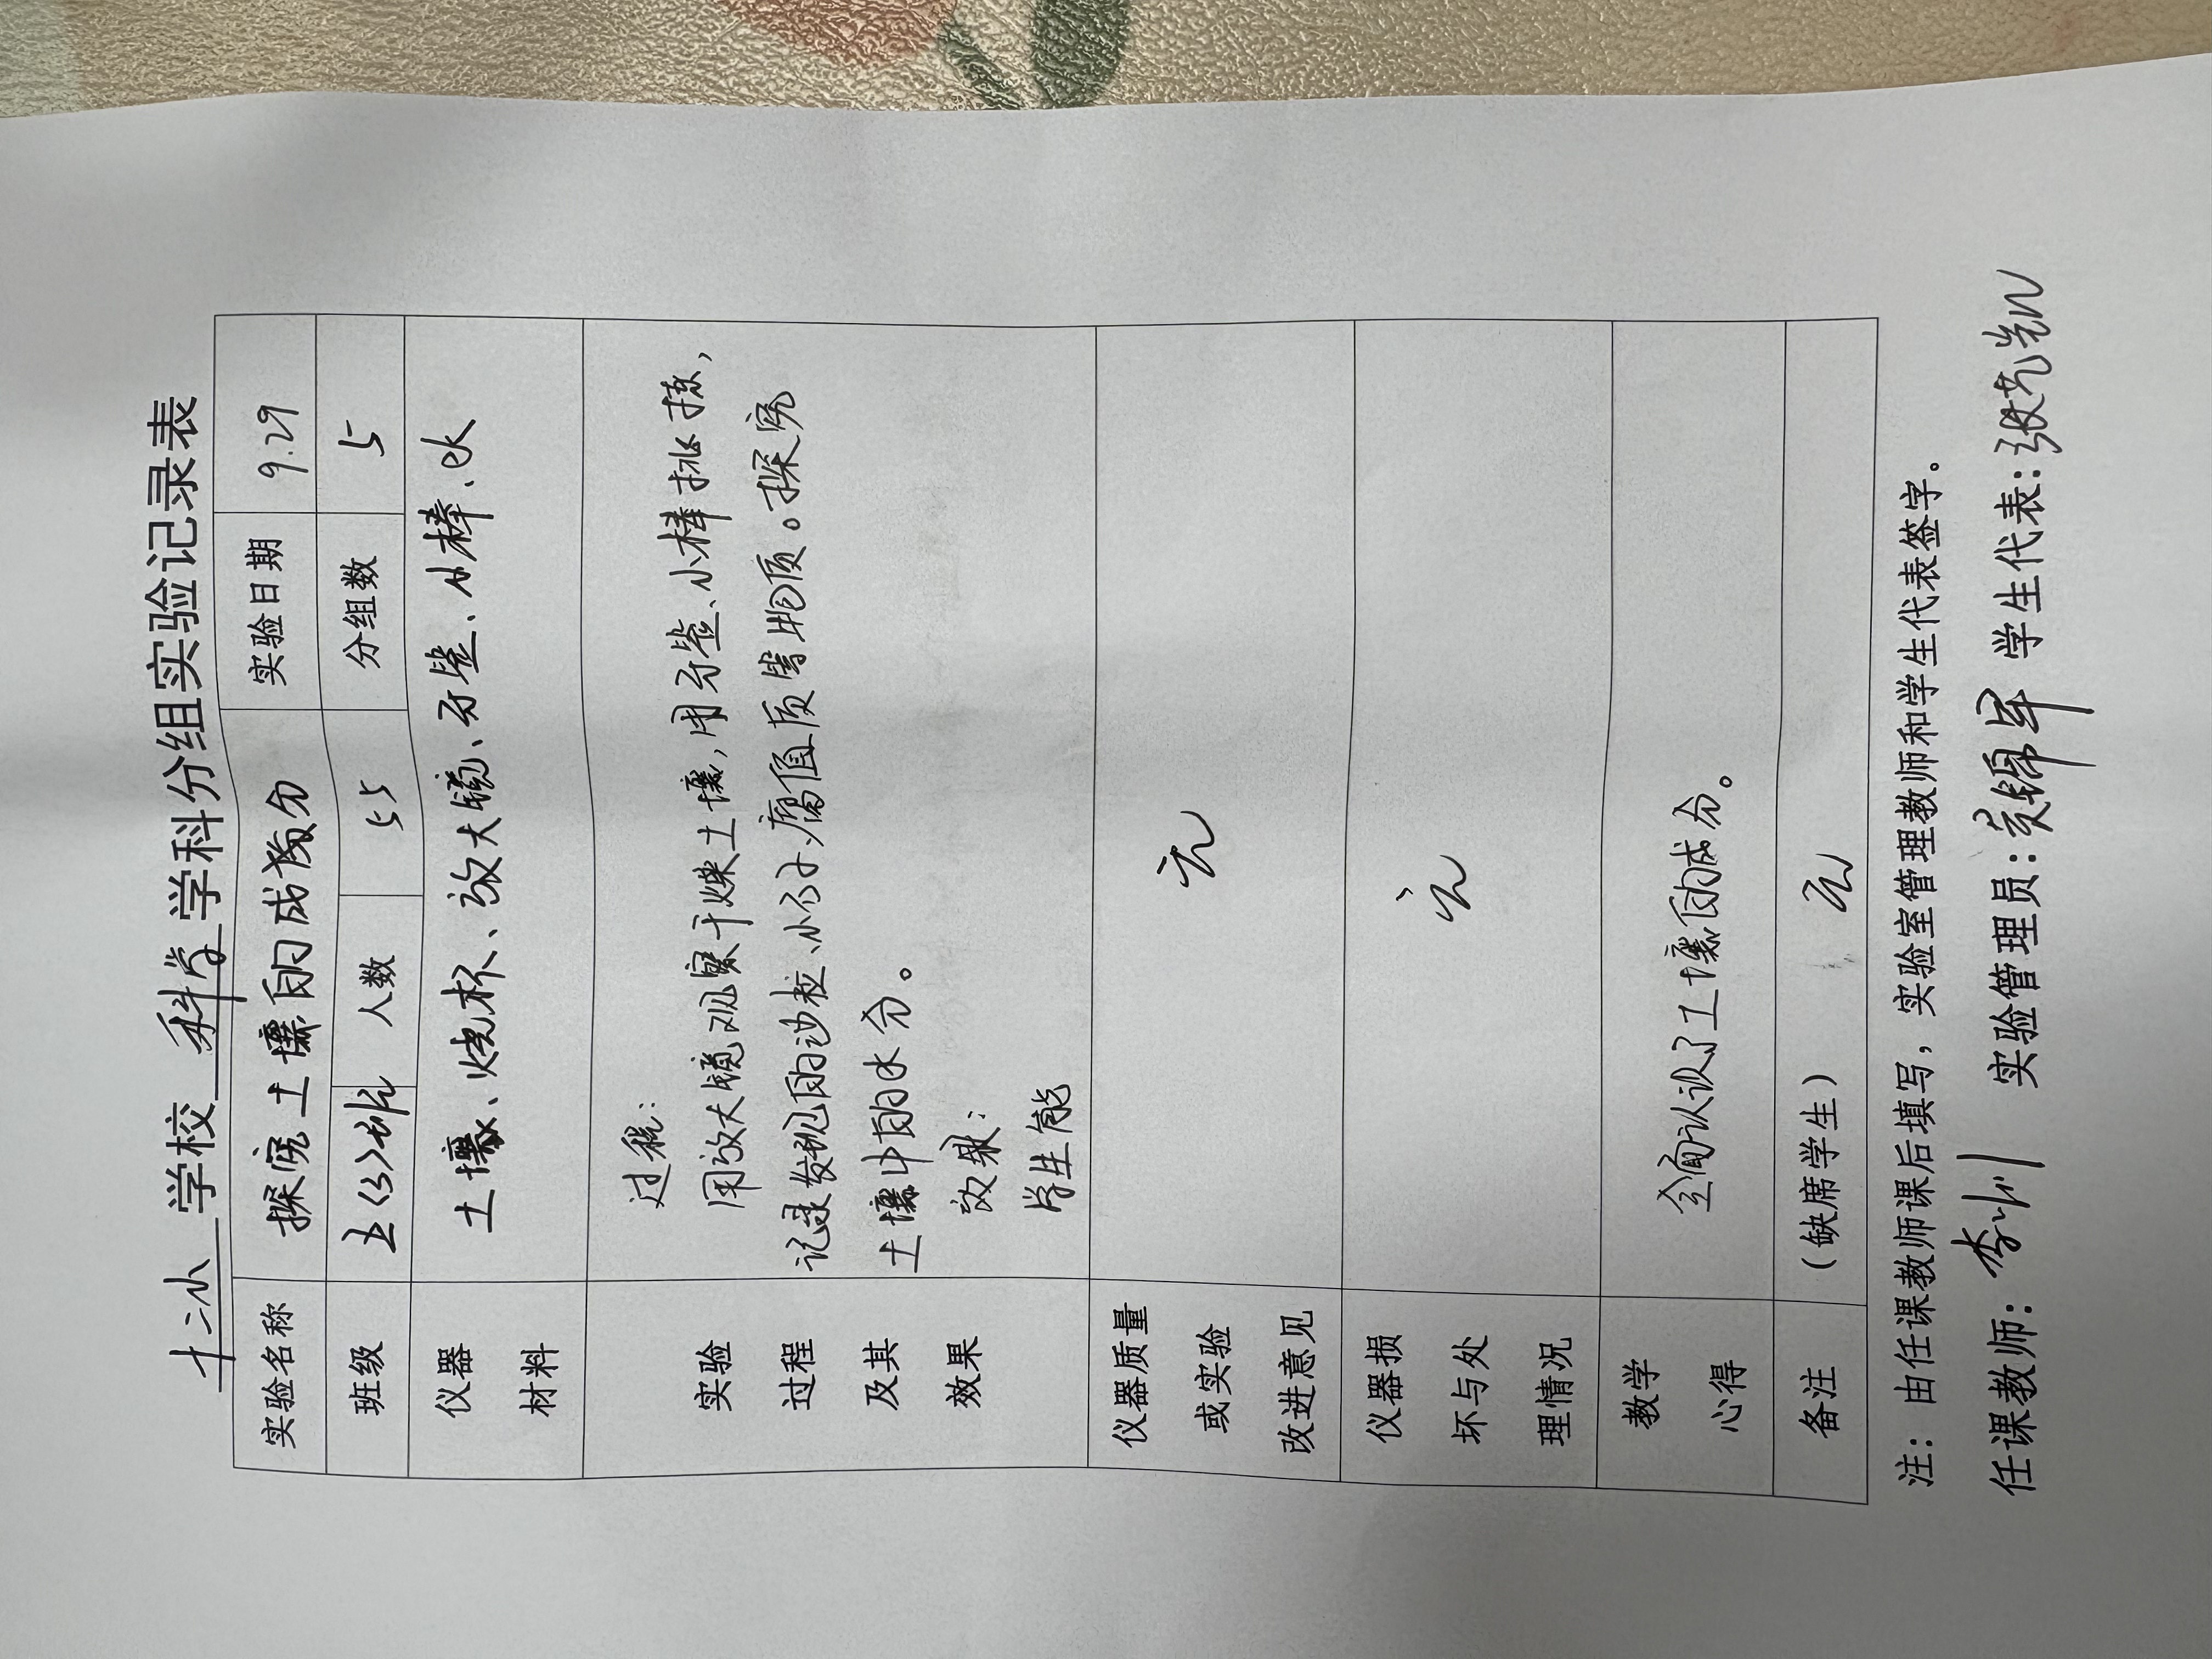 十二小 学校 科学 学科分组实验记录表
实验名称 探究土壤的成分 实验日期 9.29
班级 五<3>班 人数 55 分组数 5
仪器材料 土壤、烧杯、放大镜、牙签、小棒、水
实验过程及其效果
过程:
用放大镜观察干燥土壤,用牙签、小棒挑拣,
记录发现的沙粒、小石子、腐值质等物质。探究
土壤中的水分。
效果:
学生能
仪器质量或实验改进意见 无
仪器损坏与处理情况 无
教学心得 全面认识了土壤的成分。
备注 (缺席学生) 无
注:由任课教师课后填写,实验室管理教师和学生代表签字。
任课教师: 李 实验管理员: 学生代表: 张